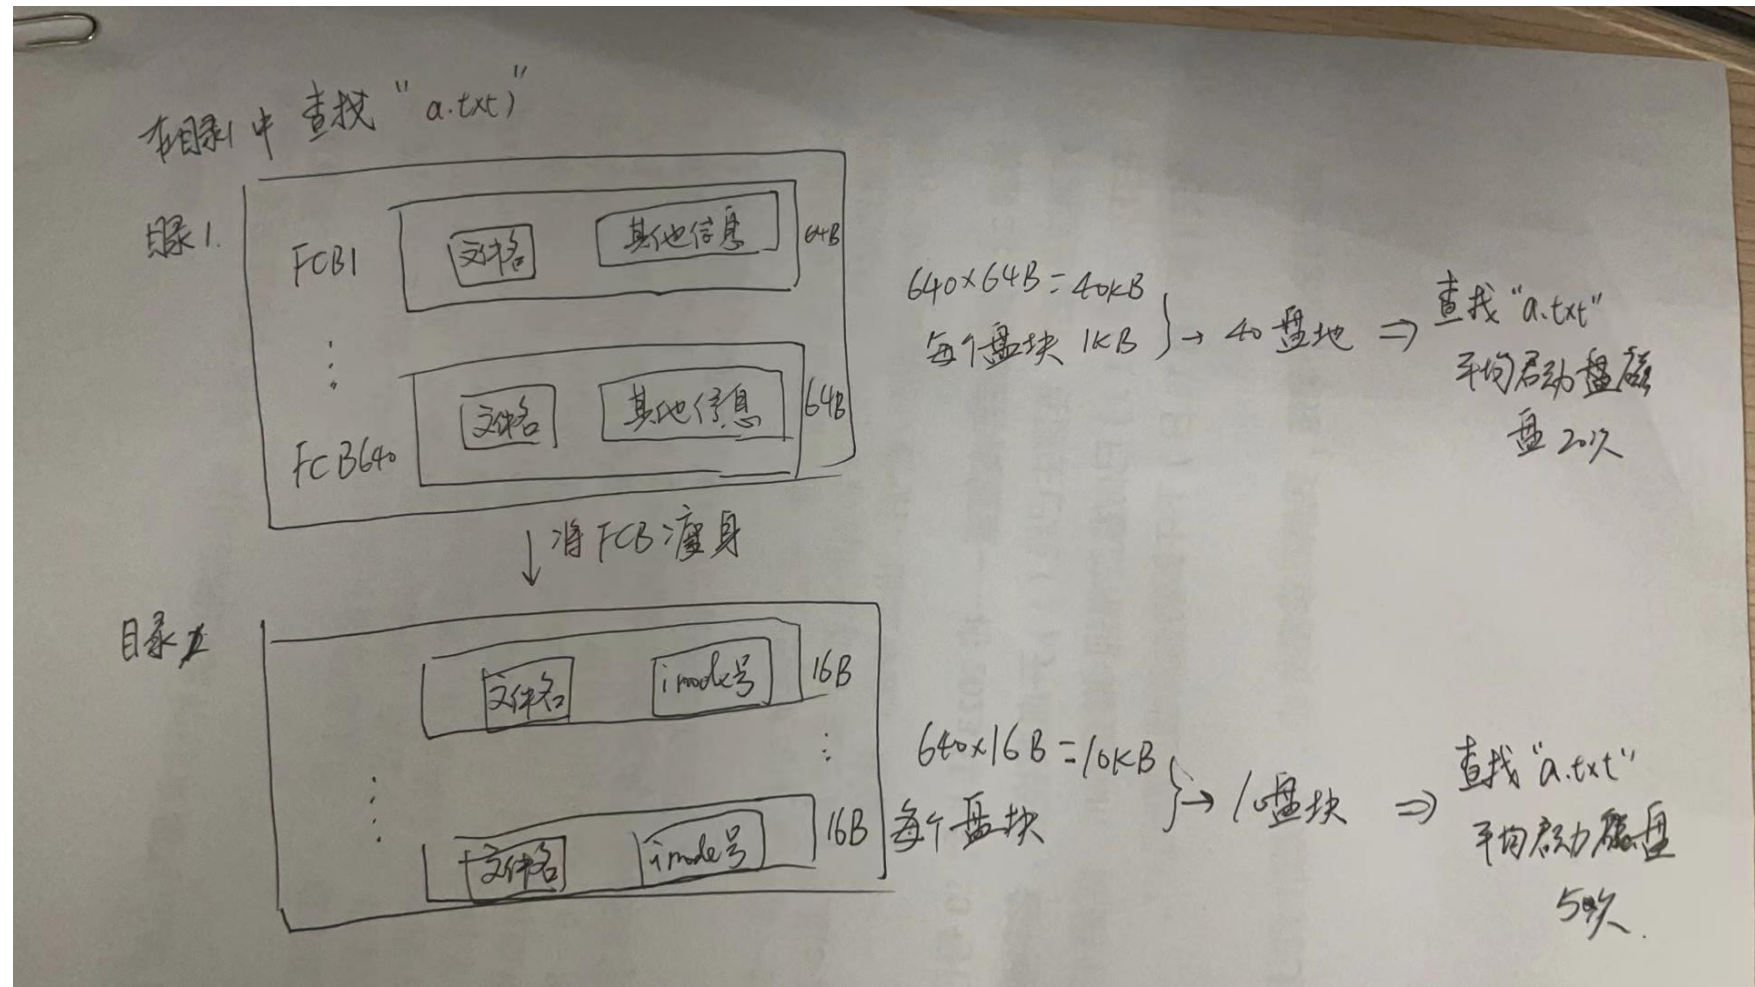 在目录1中查找“a.txt”
目录1.
FCB1
文件名
其他信息
64B
FCB640
文件名
其他信息
64B
640×64B=40KB
每个盘块1KB
→40盘地⇒
查找“a.txt”
平均启动磁
盘20次
↓将FCB瘦身
目录
文件名
inode号
16B
文件名
inode号
16B
640×16B=10KB
每个盘块
→10盘块⇒
查找“a.txt”
平均启动磁盘
5次.